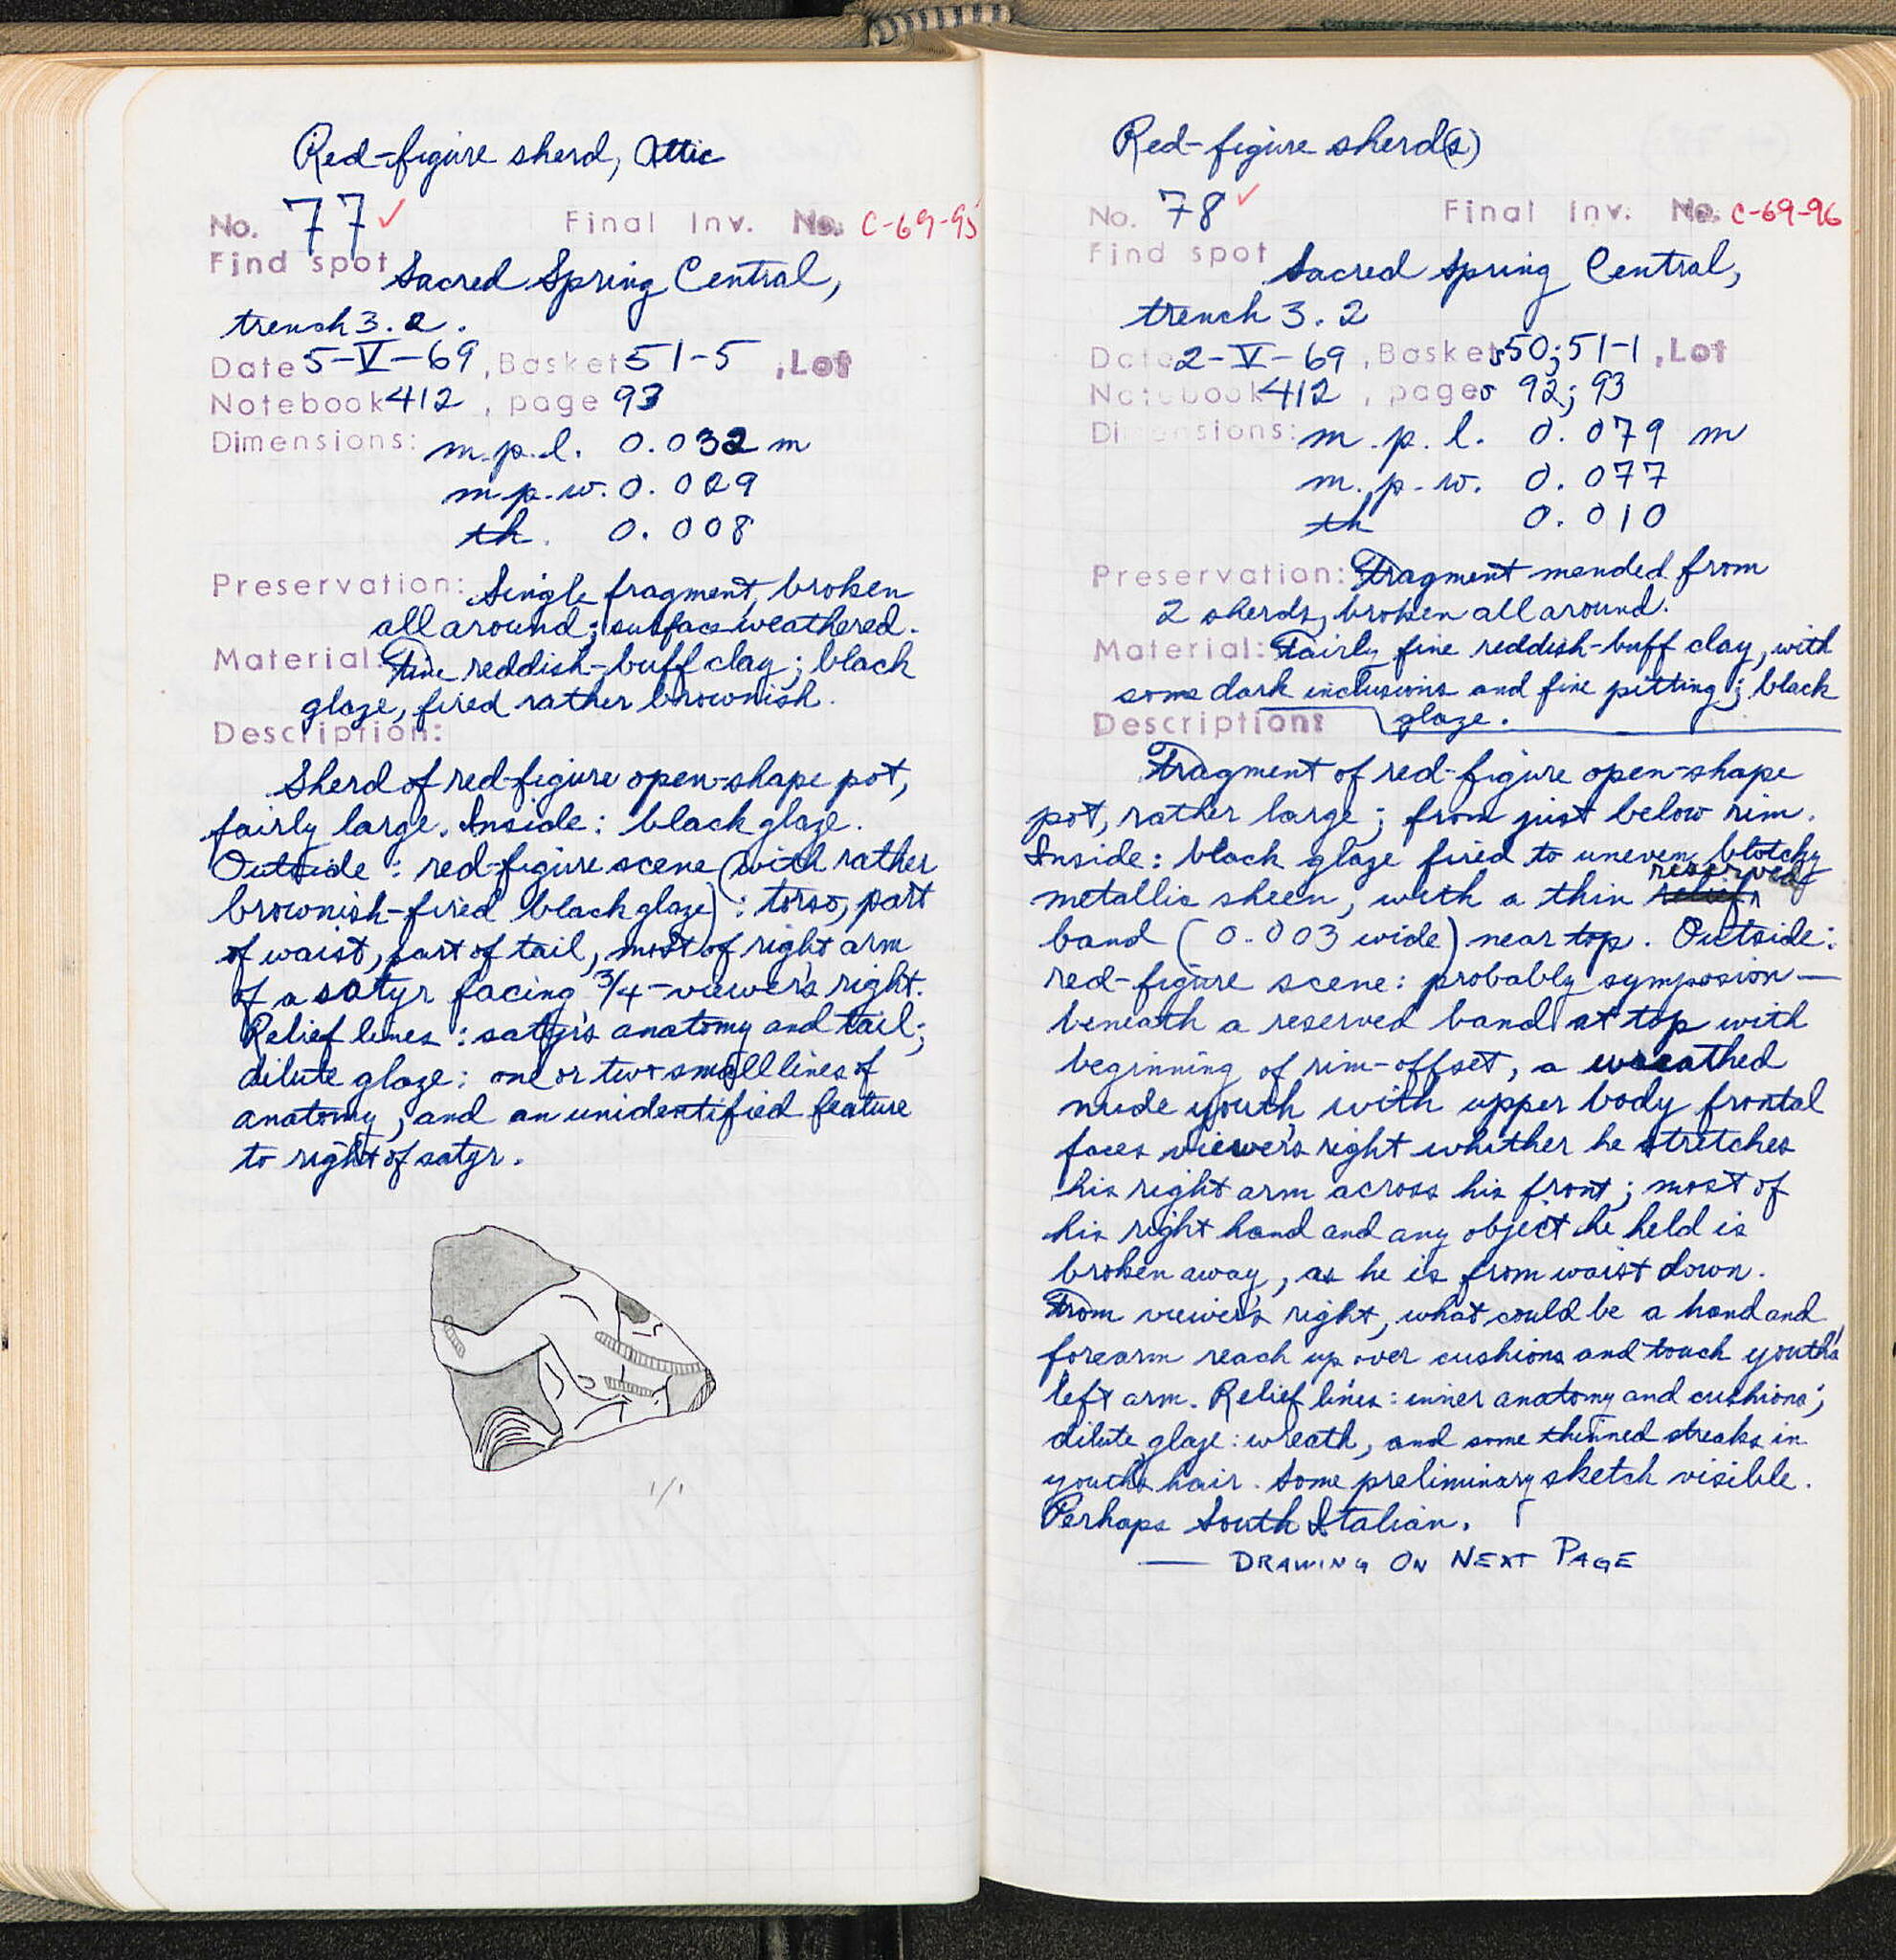 Red-figure sherd, Attic
No. 77 ✓ Final Inv. No. C-69-95
Find spot Sacred Spring Central,
trench 3.2.
Date 5-V-69, Basket 51-5, Lot
Notebook 412, page 93
Dimensions: m.p.l. 0.032 m
m.p.w. 0.029
th. 0.008
Preservation: Single fragment, broken
all around; surface weathered.
Material: Fine reddish-buff clay; black
glaze, fired rather brownish.
Description:
Sherd of red-figure open-shape pot,
fairly large. Inside: black glaze.
Outside: red-figure scene (with rather
brownish-fired black glaze): torso, part
of waist, part of tail, most of right arm
of a satyr facing 3/4-viewer's right.
Relief lines: satyr's anatomy and tail;
dilute glaze: one or two small lines of
anatomy, and an unidentified feature
to right of satyr.
1/1
Red-figure sherd(s)
No. 78 ✓ Final Inv. No. C-69-96
Find spot Sacred Spring Central,
trench 3.2
Date 2-V-69, Baskets 50; 51-1, Lot
Notebook 412, pages 92; 93
Dimensions: m.p.l. 0.079 m
m.p.w. 0.077
th 0.010
Preservation: Fragment mended from
2 sherds, broken all around.
Material: Fairly fine reddish-buff clay, with
some dark inclusions and fine pitting; black
Description: glaze.
Fragment of red-figure open-shape
pot, rather large; from just below rim.
Inside: black glaze fired to uneven, blotchy
metallic sheen, with a thin relief reserved
band (0.003 wide) near top. Outside:
red-figure scene: probably symposion—
beneath a reserved band at top with
beginning of rim-offset, a wreathed
nude youth with upper body frontal
faces viewer's right whither he stretches
his right arm across his front; most of
his right hand and any object he held is
broken away, as he is from waist down.
From viewer's right, what could be a hand and
forearm reach up over cushions and touch youth's
left arm. Relief lines: inner anatomy and cushions;
dilute glaze: wreath, and some thinned streaks in
youth's hair. Some preliminary sketch visible.
Perhaps South Italian.
— DRAWING ON NEXT PAGE